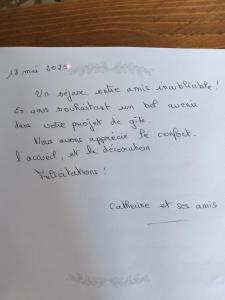 18 mai 202
Un séjour entre amis inoubliable !
En vous souhaitant un bel avenir
dans votre projet de gîte.
Nous avons apprécié le confort.
l'accueil, et la décoration
Félicitations !
Catherine et ses amis